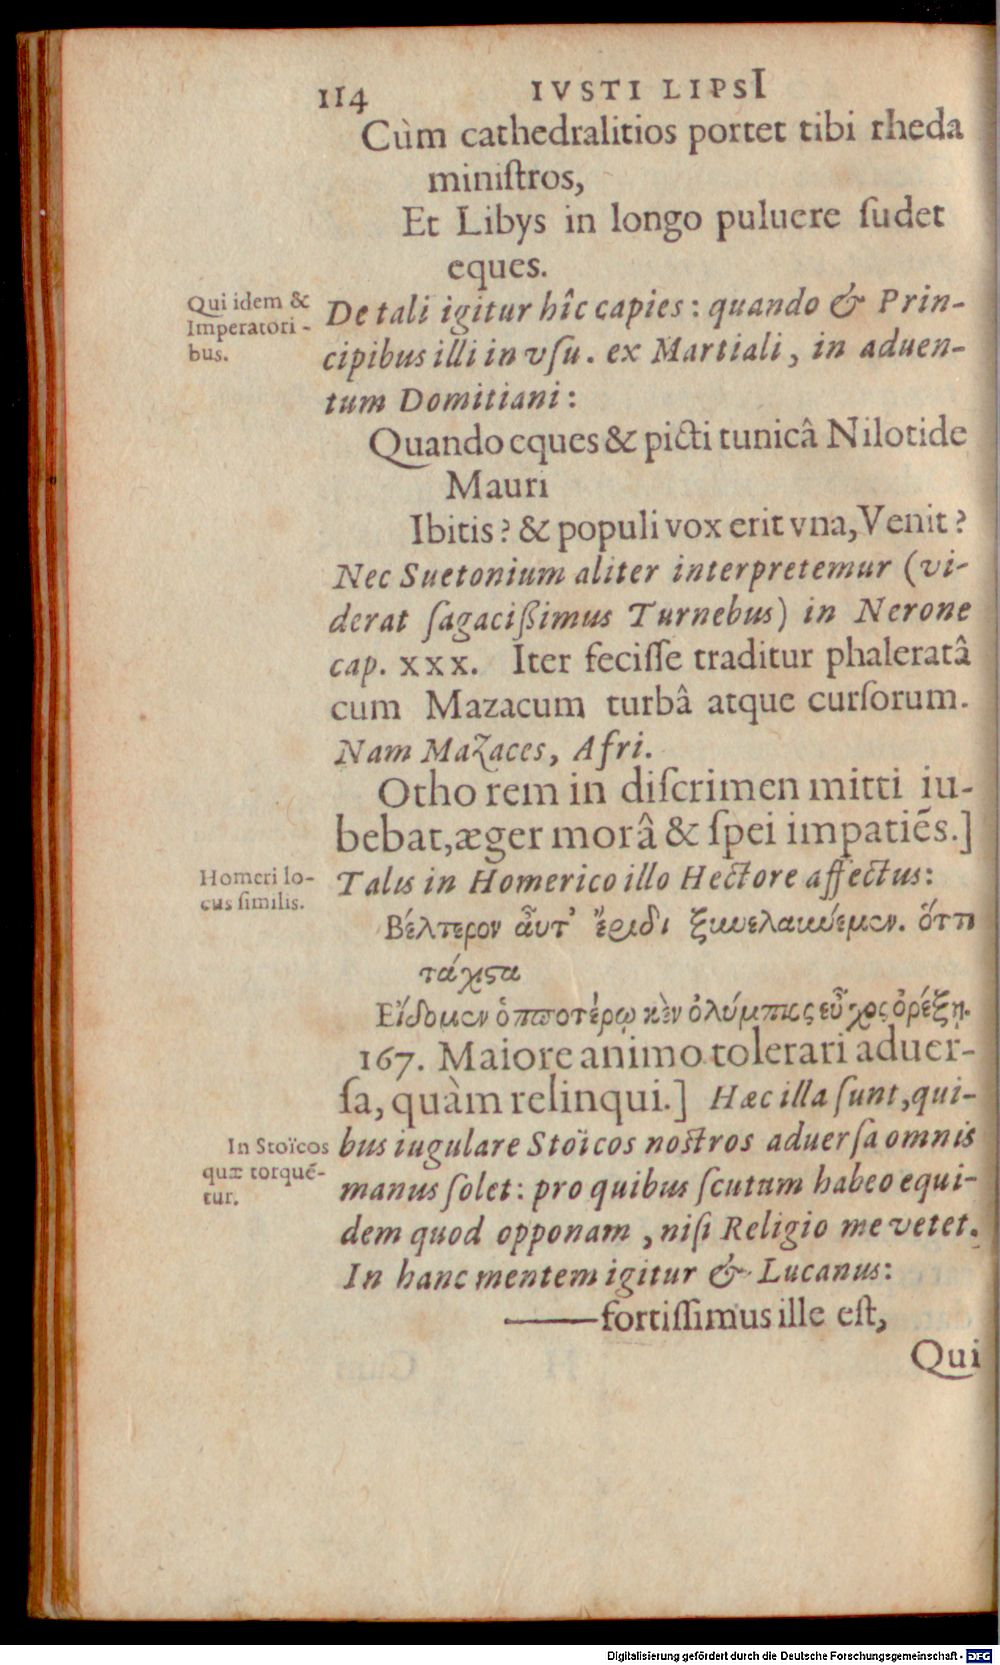 114 IVSTI LIPSI
Cùm cathedralitios portet tibi rheda
miniſtros,
Et Libys in longo puluere ſudet
eques.
Qui idem &
Imperatori-
bus.
De tali igitur hîc capies: quando & Prin-
cipibus illi in vſu. ex Martiali, in aduen-
tum Domitiani:
Quando eques & picti tunicâ Nilotide
Mauri
Ibitis? & populi vox erit vna, Venit?
Nec Suetonium aliter interpretemur (vi-
derat ſagacißimus Turnebus) in Nerone
cap. xxx. Iter feciſſe traditur phaleratâ
cum Mazacum turbâ atque curſorum.
Nam Mazaces, Afri.
Otho rem in diſcrimen mitti iu-
bebat, æger morâ & ſpei impatiẽs.]
Homeri lo-
cus ſimilis.
Talis in Homerico illo Hectore affectus:
Βέλτερον αὖτ' ἔριδι ξυνελαυνέμεν. ὅττι
τάχιστα
Εἴδομεν ὁπποτέρῳ κὲν ὀλύμπιος εὖχος ὀρέξῃ.
167. Maiore animo tolerari aduer-
ſa, quàm relinqui.] Hæc illa ſunt, qui-
In Stoïcos
quæ torquẽ-
tur.
bus iugulare Stoïcos noſtros aduerſa omnis
manus ſolet: pro quibus ſcutum habeo equi-
dem quod opponam, niſi Religio me vetet.
In hanc mentem igitur & Lucanus:
——fortiſſimus ille eſt,
Qui
Digitalisierung gefördert durch die Deutsche Forschungsgemeinschaft - DFG